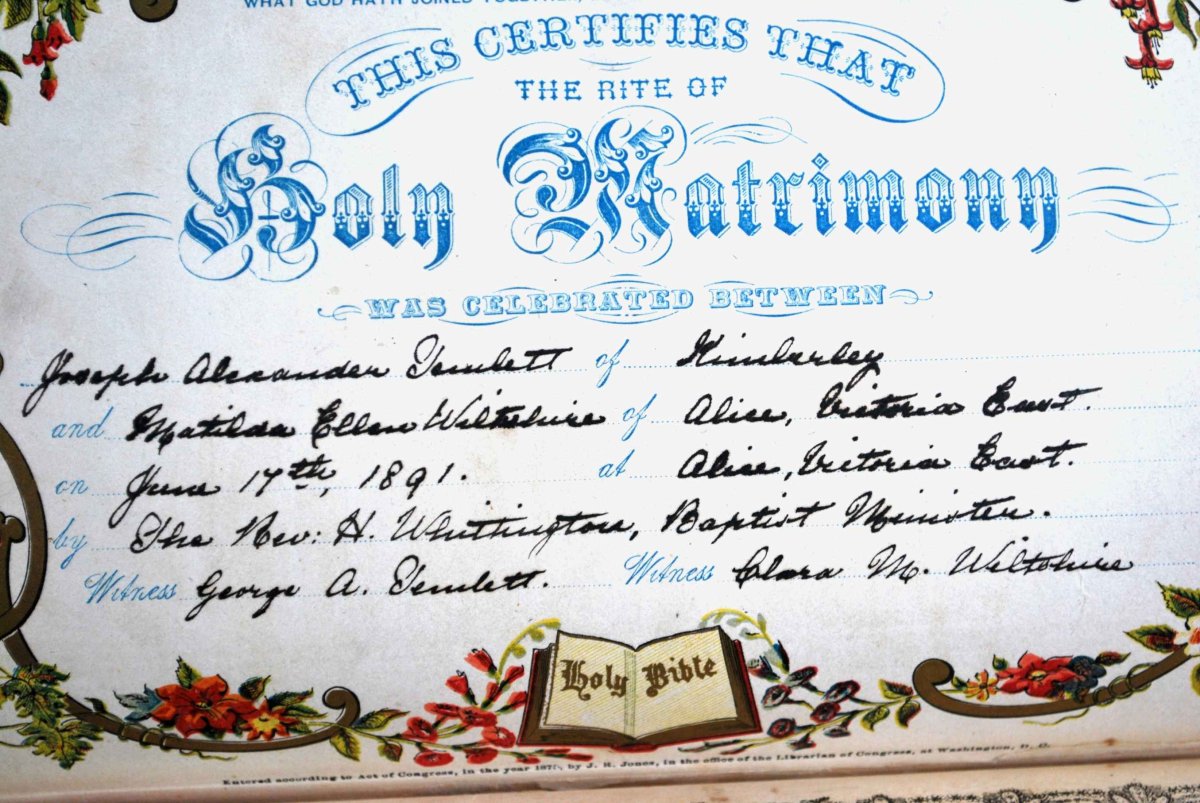 WHAT GOD HATH JOINED TOGETHER,
THIS CERTIFIES THAT
THE RITE OF
Holy Matrimony
WAS CELEBRATED BETWEEN
Joseph Alexander Temlett of Kimberley
and Matilda Ellen Wiltshire of Alice, Victoria East.
on June 17th, 1891. at Alice, Victoria East.
by The Rev: H. Whittington, Baptist Minister.
Witness George A. Temlett. Witness Clara M. Wiltshire
Holy Bible
Entered according to Act of Congress, in the year by J. R. Jones, in the office of the Librarian of Congress, at Washington, D. C.